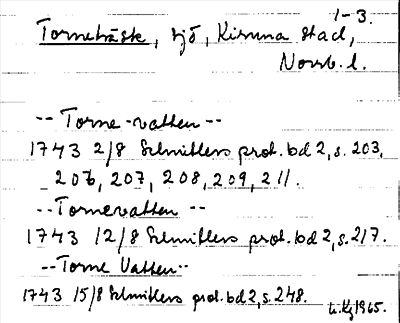 1-3.
Torneträsk, sjö, Kiruna stad,
Norrb. l.
-- Torne-vatten --
1743 2/8 Schnitlers prot. bd 2, s. 203,
206, 207, 208, 209, 211.
-- Tornevatten --
1743 12/8 Schnitlers prot. bd 2, s. 217.
-- Torne Vatten --
1743 15/8 Schnitlers prot. bd 2, s. 248.
1965.